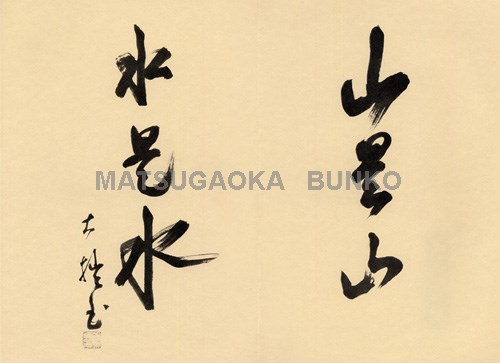 山是山
水是水
大拙書
MATSUGAOKA BUNKO